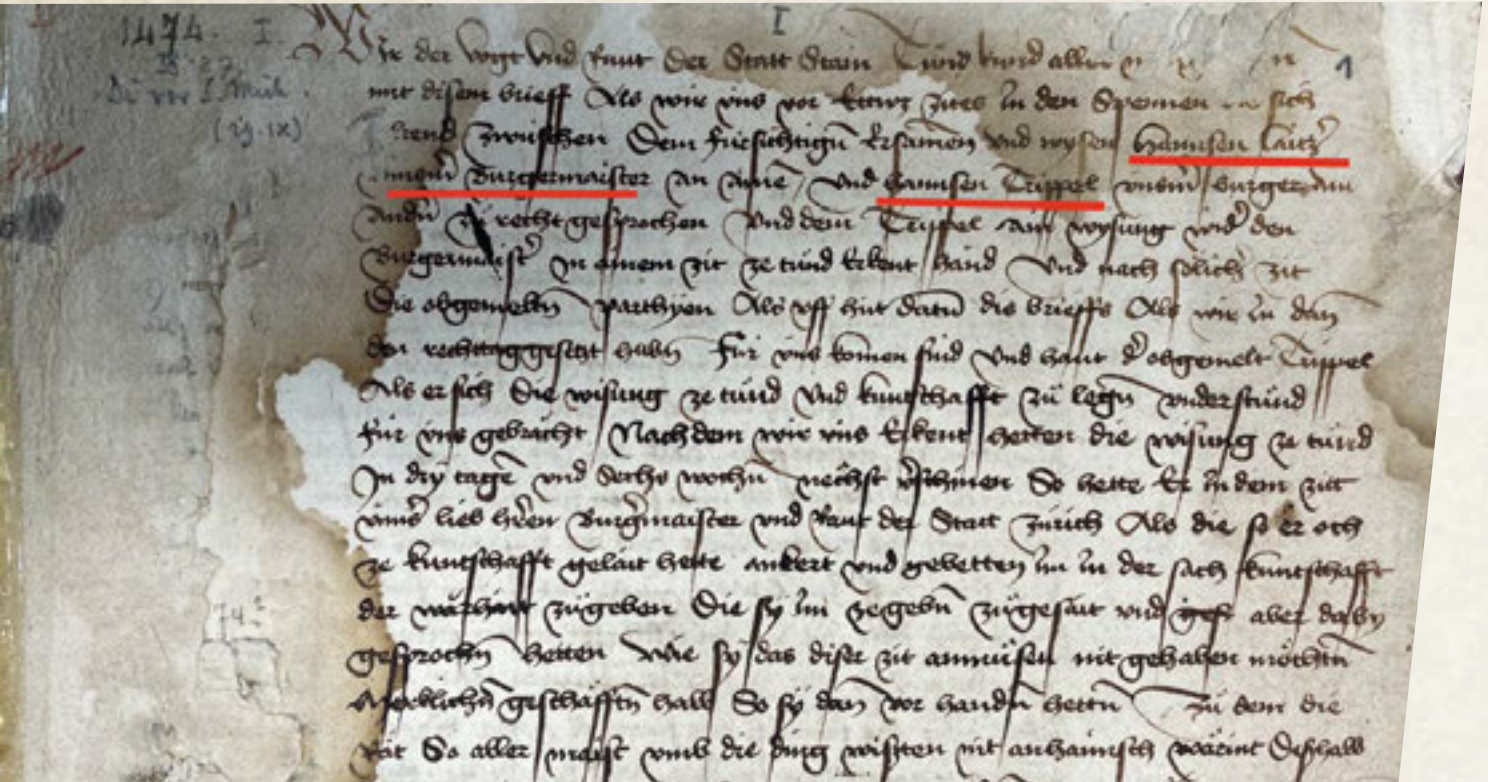 1474. I.
I
1
Wir der vogt und Raut der Statt Stain Tund kund allen
mit disem brieff Als wir uns vor Ettwz zites In den Spennen sich
zwuschen Dem fursichtign Ersamen und wysen Hannsen Laitzr
unserm Burgermaister an ainem und Hannsen Trippel unserm burger am
andrn recht gesprochen Und dem Trippel ain wysung wider den
Burgermaistr In ainem zit ze tund Erkent hand Und nach solicher zit
Die obgemeltn parthyen Als uff hut datum dis brieffs Als wir In dan
den rechttag gesetzt habn Fur uns komen sind Und haut der obgemelt Trippel
Als er sich Die wisung ze tund Und kuntschafft zu legn understund
fur uns gebracht Nach dem wir uns Erkent hetten die wisung ze tund
In dry tagen und Sechs wochn nechst verschinen So hette Er In dem zitt
unser lieb herren Burgermaister und Raut der Statt Zurich Als die so er och
ze kuntschafft gelait hette ankert und gebetten Im In der sach kuntschafft
der warhait zugeben Die sy Im ze gebn zugesait und aber daby
gesprochn hetten Wie sy das diser zit anmusen nit gehaben mochtn
Merklichn geschafftn halb So sy dan vor handn hettn Zu dem die
Rat So aller maist umb die ding wissten nit anhaimsch warint Deshalb